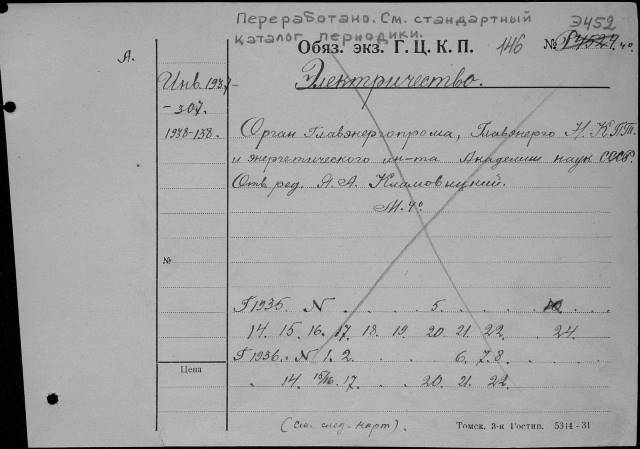 Переработано. См. стандартный Э452
каталог периодики.
Обяз. экз. Г. Ц. К. П. 146 №
А.
Инв. 1937- Электричество.
-307.
1938-158. Орган Главэнергопрома, Главэнерго Н.К.П.Т.
и энергетического ин-та Академии наук СССР.
Отв. ред. Я. А. Климовицкий.
М. 4°
№
Г 1935. N . . . . 5. . . . . 10
14. 15. 16. 17. 18. 19. 20. 21. 22. 24.
Г 1936. N 1. 2. . . . 6. 7. 8. . . .
Цена
. 14. 15/16. 17. . . 20. 21. 22.
(См. след. карт).
Томск. 3-я Гостип. 5314-31